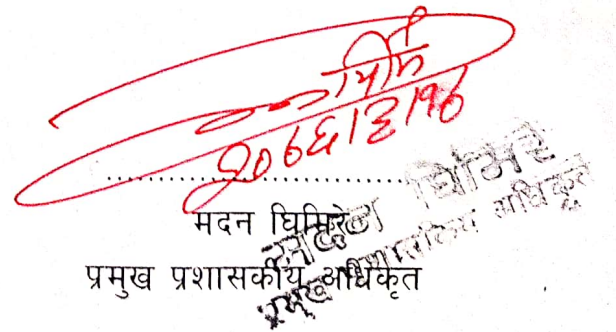 २०७६।३।१७
मदन घिमिरे
प्रमुख प्रशासकीय अधिकृत
मदन घिमिरे
प्रमुख प्रशासकिय अधिकृत